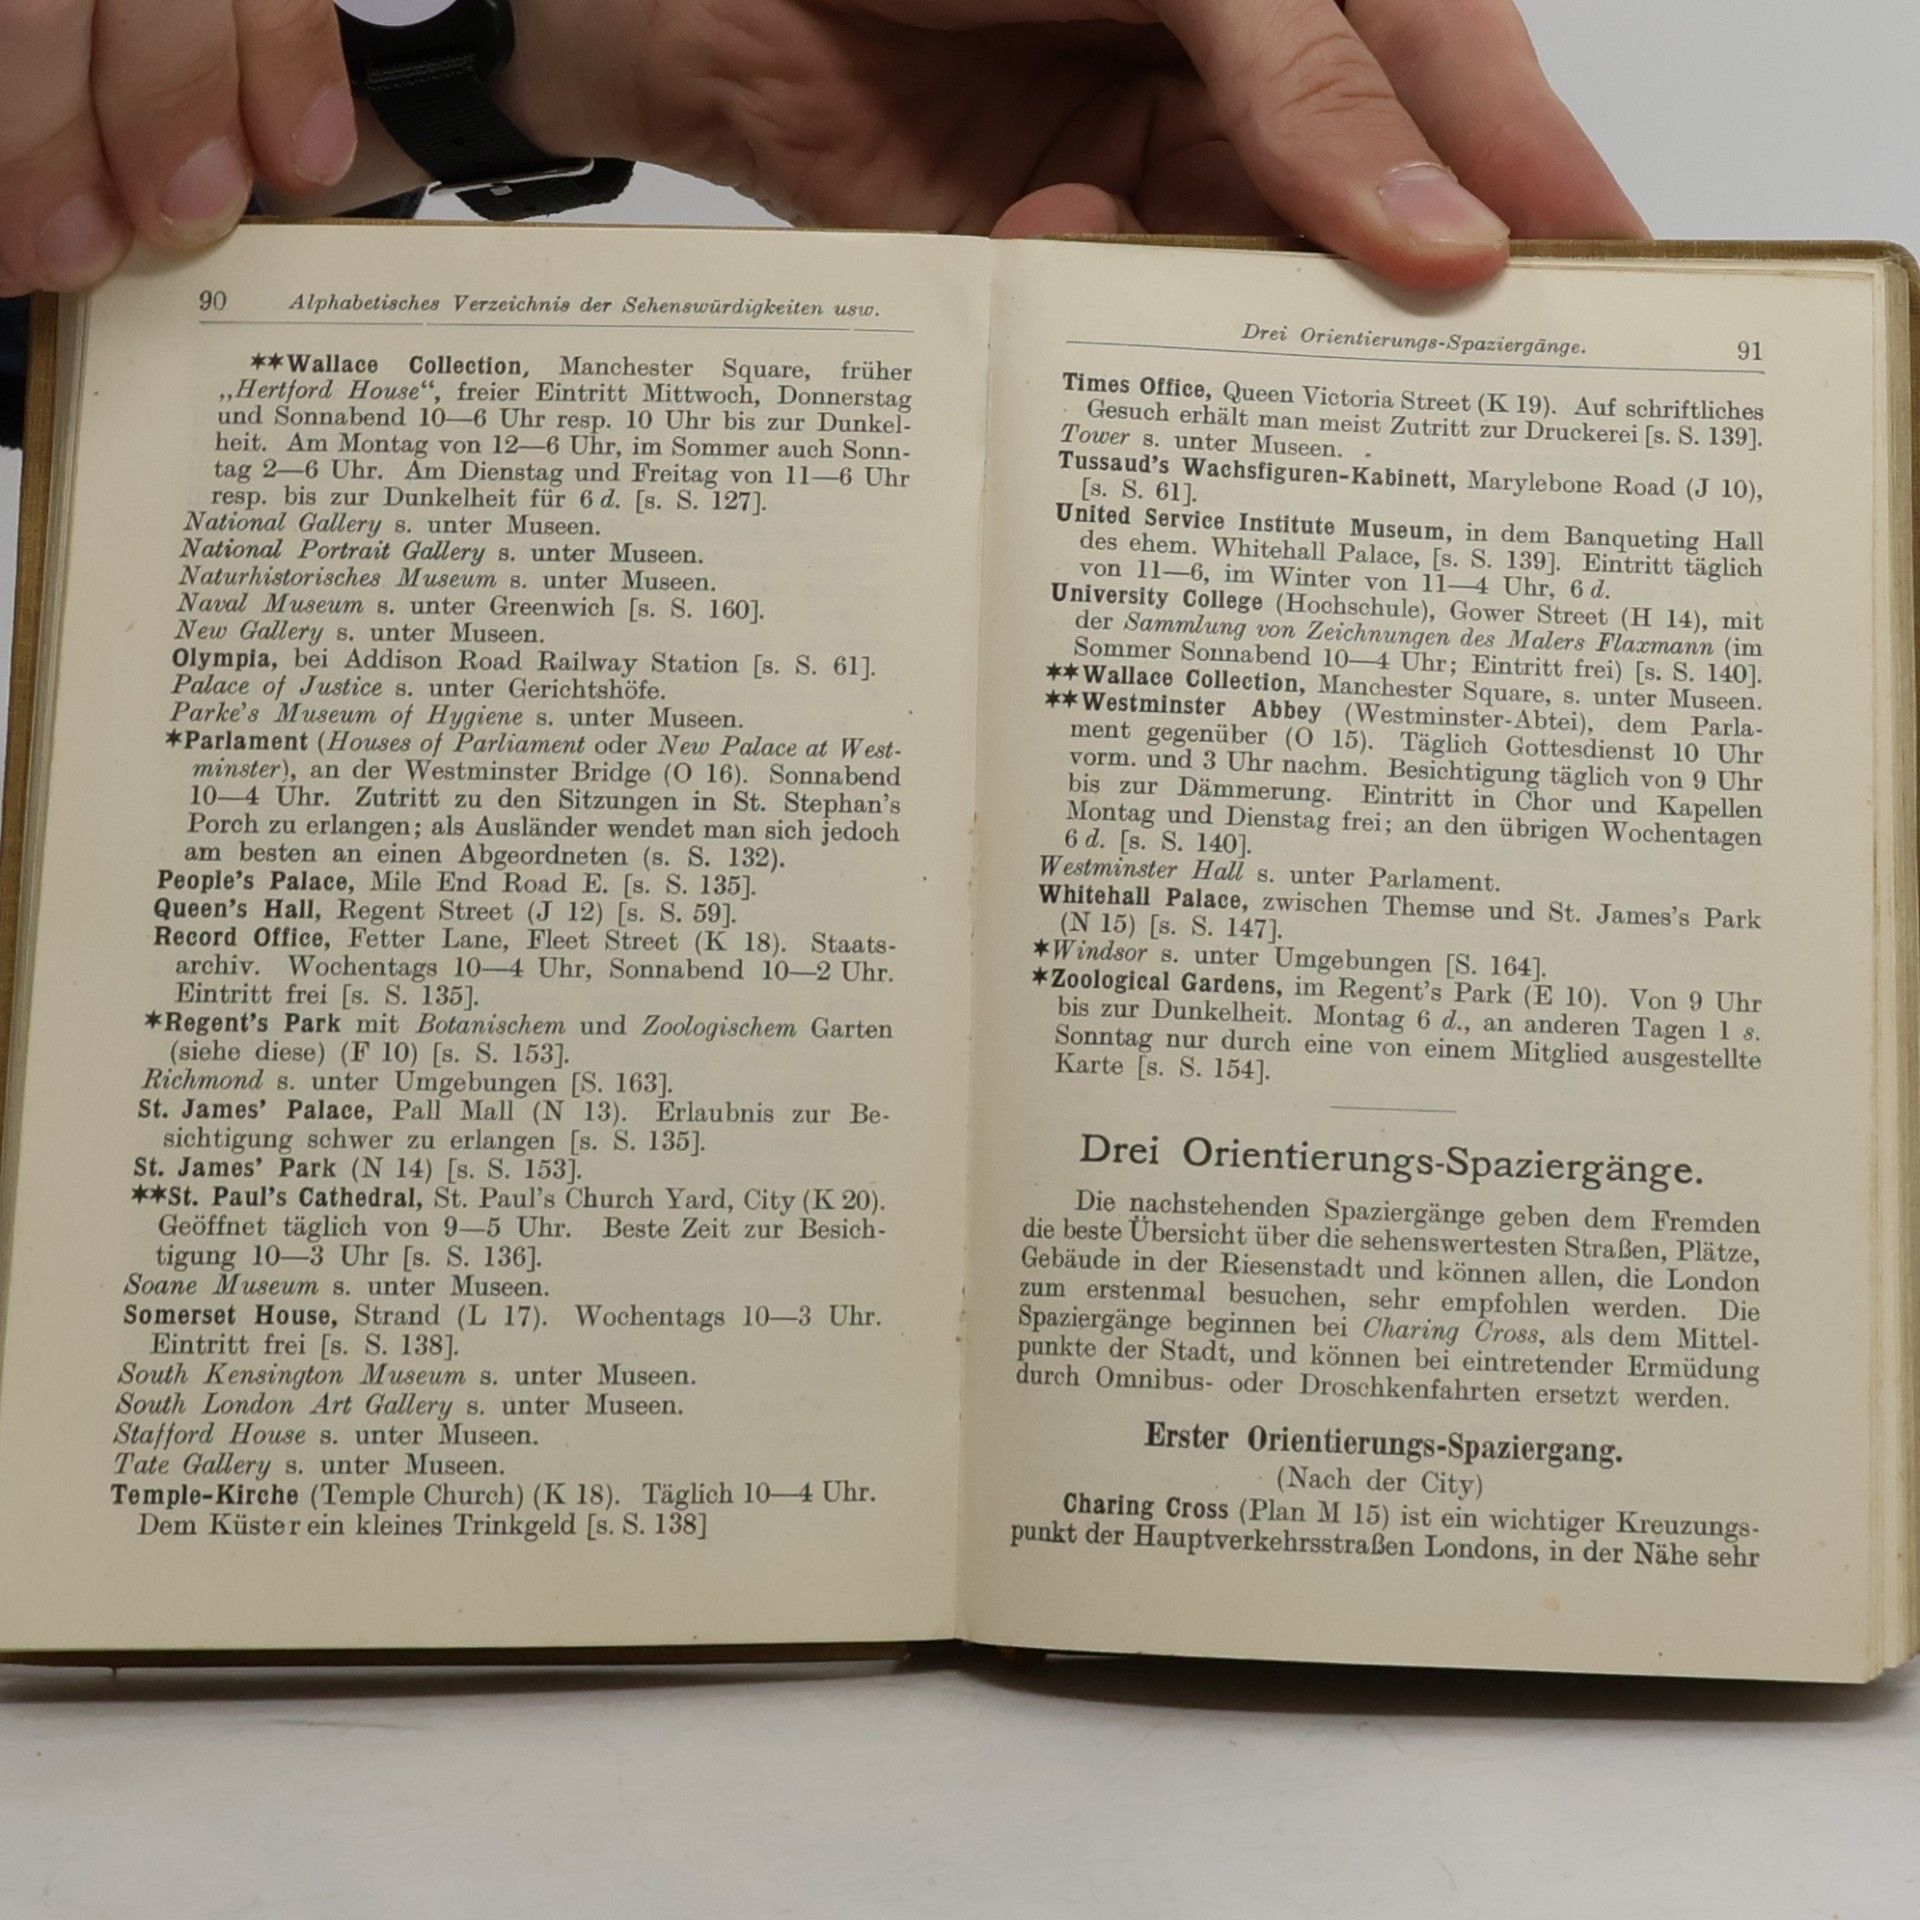 90 Alphabetisches Verzeichnis der Sehenswürdigkeiten usw.
**Wallace Collection, Manchester Square, früher
„Hertford House“, freier Eintritt Mittwoch, Donnerstag
und Sonnabend 10—6 Uhr resp. 10 Uhr bis zur Dunkel-
heit. Am Montag von 12—6 Uhr, im Sommer auch Sonn-
tag 2—6 Uhr. Am Dienstag und Freitag von 11—6 Uhr
resp. bis zur Dunkelheit für 6 d. [s. S. 127].
National Gallery s. unter Museen.
National Portrait Gallery s. unter Museen.
Naturhistorisches Museum s. unter Museen.
Naval Museum s. unter Greenwich [s. S. 160].
New Gallery s. unter Museen.
Olympia, bei Addison Road Railway Station [s. S. 61].
Palace of Justice s. unter Gerichtshöfe.
Parke's Museum of Hygiene s. unter Museen.
*Parlament (Houses of Parliament oder New Palace at West-
minster), an der Westminster Bridge (O 16). Sonnabend
10—4 Uhr. Zutritt zu den Sitzungen in St. Stephan's
Porch zu erlangen; als Ausländer wendet man sich jedoch
am besten an einen Abgeordneten (s. S. 132).
People's Palace, Mile End Road E. [s. S. 135].
Queen's Hall, Regent Street (J 12) [s. S. 59].
Record Office, Fetter Lane, Fleet Street (K 18). Staats-
archiv. Wochentags 10—4 Uhr, Sonnabend 10—2 Uhr.
Eintritt frei [s. S. 135].
*Regent's Park mit Botanischem und Zoologischem Garten
(siehe diese) (F 10) [s. S. 153].
Richmond s. unter Umgebungen [S. 163].
St. James' Palace, Pall Mall (N 13). Erlaubnis zur Be-
sichtigung schwer zu erlangen [s. S. 135].
St. James' Park (N 14) [s. S. 153].
**St. Paul's Cathedral, St. Paul's Church Yard, City (K 20).
Geöffnet täglich von 9—5 Uhr. Beste Zeit zur Besich-
tigung 10—3 Uhr [s. S. 136].
Soane Museum s. unter Museen.
Somerset House, Strand (L 17). Wochentags 10—3 Uhr.
Eintritt frei [s. S. 138].
South Kensington Museum s. unter Museen.
South London Art Gallery s. unter Museen.
Stafford House s. unter Museen.
Tate Gallery s. unter Museen.
Temple-Kirche (Temple Church) (K 18). Täglich 10—4 Uhr.
Dem Küster ein kleines Trinkgeld [s. S. 138]
Drei Orientierungs-Spaziergänge. 91
Times Office, Queen Victoria Street (K 19). Auf schriftliches
Gesuch erhält man meist Zutritt zur Druckerei [s. S. 139].
Tower s. unter Museen.
Tussaud's Wachsfiguren-Kabinett, Marylebone Road (J 10),
[s. S. 61].
United Service Institute Museum, in dem Banqueting Hall
des ehem. Whitehall Palace, [s. S. 139]. Eintritt täglich
von 11—6, im Winter von 11—4 Uhr, 6 d.
University College (Hochschule), Gower Street (H 14), mit
der Sammlung von Zeichnungen des Malers Flaxmann (im
Sommer Sonnabend 10—4 Uhr; Eintritt frei) [s. S. 140].
**Wallace Collection, Manchester Square, s. unter Museen.
**Westminster Abbey (Westminster-Abtei), dem Parla-
ment gegenüber (O 15). Täglich Gottesdienst 10 Uhr
vorm. und 3 Uhr nachm. Besichtigung täglich von 9 Uhr
bis zur Dämmerung. Eintritt in Chor und Kapellen
Montag und Dienstag frei; an den übrigen Wochentagen
6 d. [s. S. 140].
Westminster Hall s. unter Parlament.
Whitehall Palace, zwischen Themse und St. James's Park
(N 15) [s. S. 147].
*Windsor s. unter Umgebungen [S. 164].
*Zoological Gardens, im Regent's Park (E 10). Von 9 Uhr
bis zur Dunkelheit. Montag 6 d., an anderen Tagen 1 s.
Sonntag nur durch eine von einem Mitglied ausgestellte
Karte [s. S. 154].
Drei Orientierungs-Spaziergänge.
Die nachstehenden Spaziergänge geben dem Fremden
die beste Übersicht über die sehenswertesten Straßen, Plätze,
Gebäude in der Riesenstadt und können allen, die London
zum erstenmal besuchen, sehr empfohlen werden. Die
Spaziergänge beginnen bei Charing Cross, als dem Mittel-
punkte der Stadt, und können bei eintretender Ermüdung
durch Omnibus- oder Droschkenfahrten ersetzt werden.
Erster Orientierungs-Spaziergang.
(Nach der City)
Charing Cross (Plan M 15) ist ein wichtiger Kreuzungs-
punkt der Hauptverkehrsstraßen Londons, in der Nähe sehr